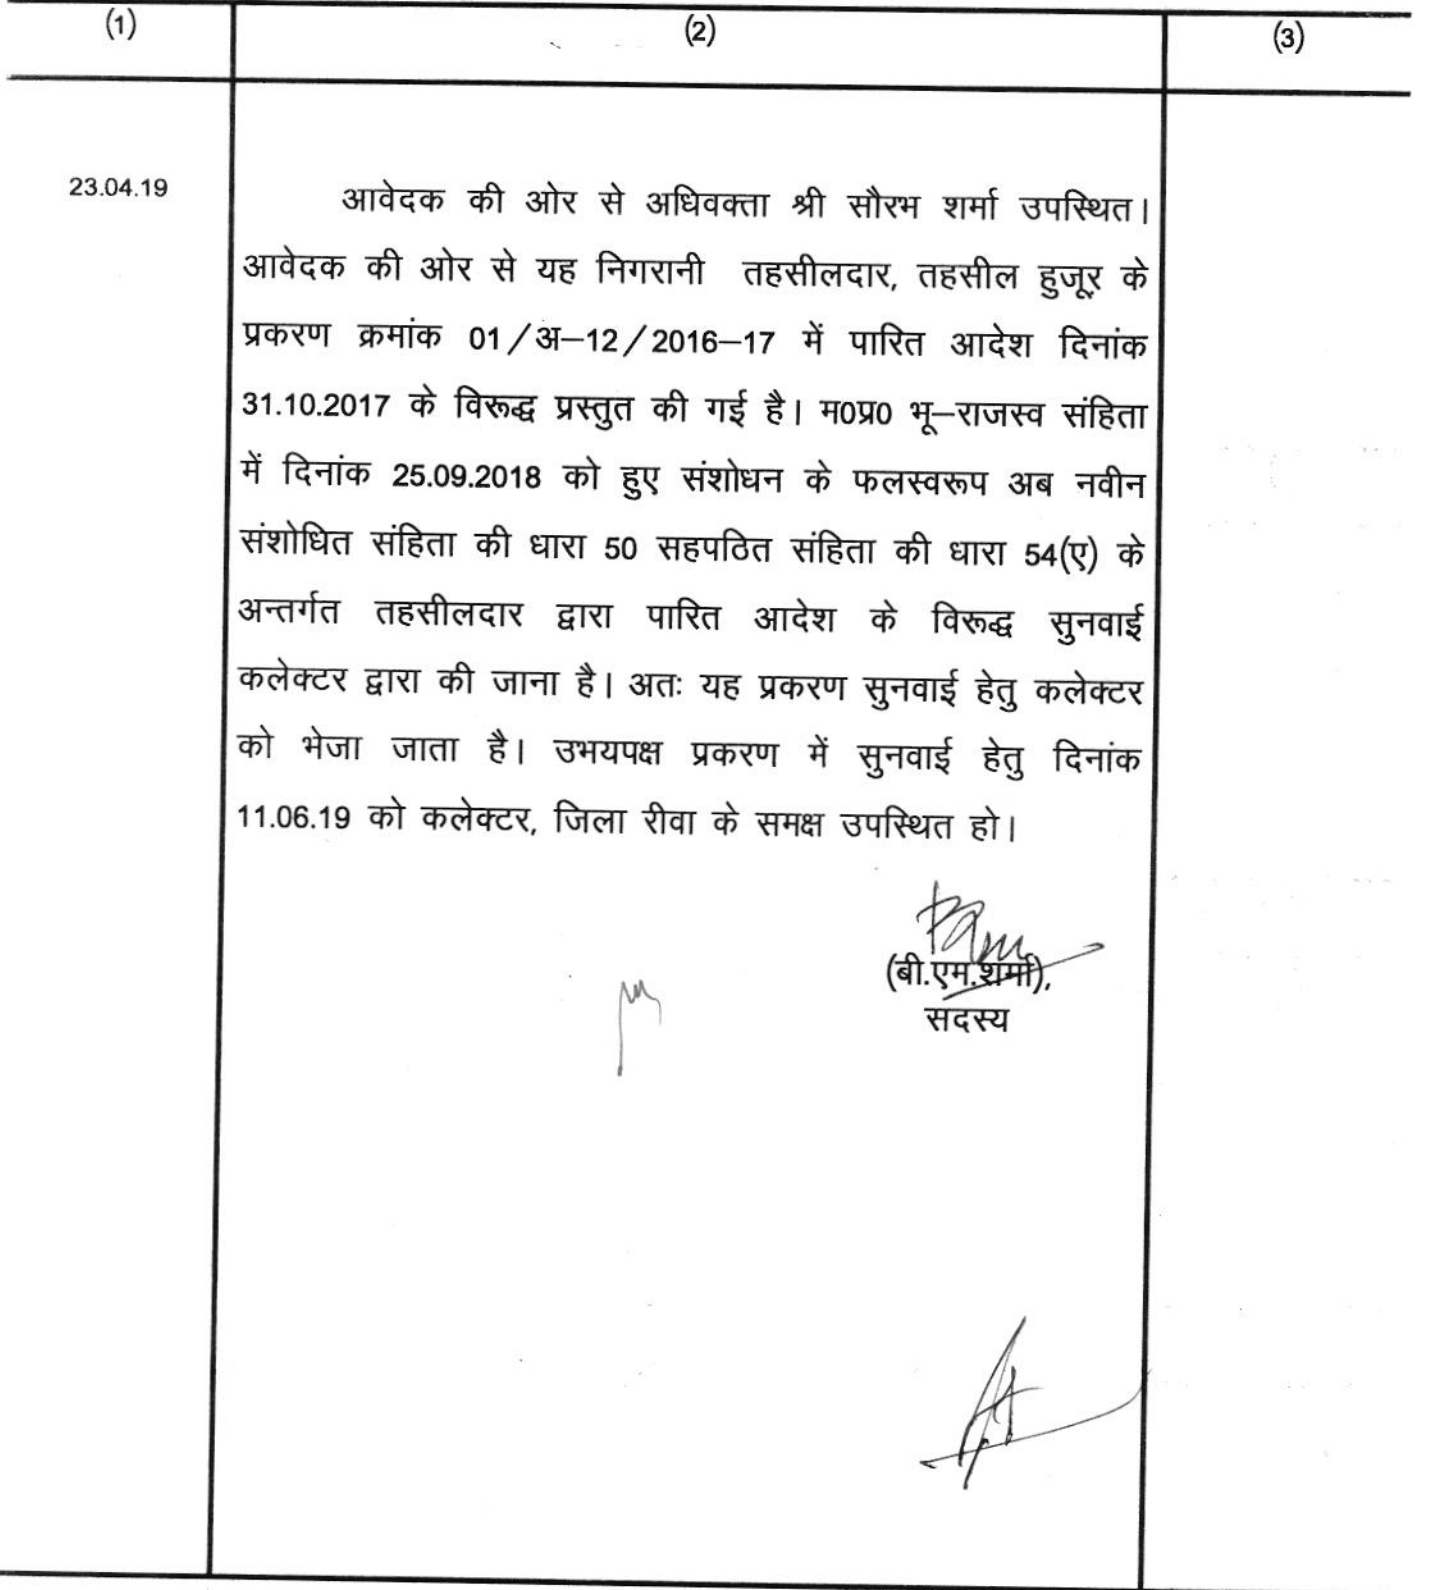 (1) (2) (3)
23.04.19
आवेदक की ओर से अधिवक्ता श्री सौरभ शर्मा उपस्थित।
आवेदक की ओर से यह निगरानी तहसीलदार, तहसील हुजूर के
प्रकरण क्रमांक 01/अ–12/2016–17 में पारित आदेश दिनांक
31.10.2017 के विरूद्ध प्रस्तुत की गई है। म0प्र0 भू–राजस्व संहिता
में दिनांक 25.09.2018 को हुए संशोधन के फलस्वरूप अब नवीन
संशोधित संहिता की धारा 50 सहपठित संहिता की धारा 54(ए) के
अन्तर्गत तहसीलदार द्वारा पारित आदेश के विरूद्ध सुनवाई
कलेक्टर द्वारा की जाना है। अतः यह प्रकरण सुनवाई हेतु कलेक्टर
को भेजा जाता है। उभयपक्ष प्रकरण में सुनवाई हेतु दिनांक
11.06.19 को कलेक्टर, जिला रीवा के समक्ष उपस्थित हो।
(बी.एम.शर्मा),
सदस्य